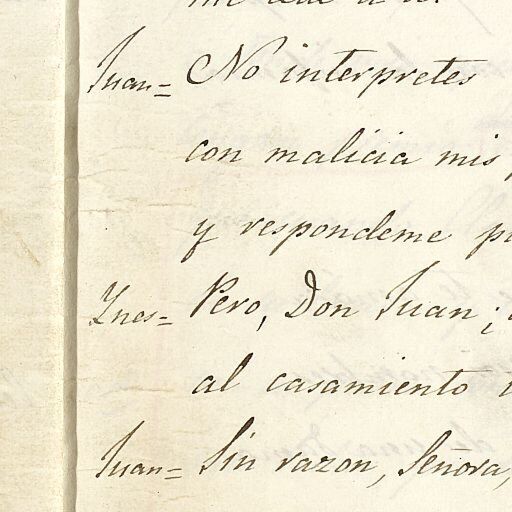 Juan= No interpretes
con malicia mis
y respondeme
Ines= Pero, Don Juan;
al casamiento
Juan= Sin razon, Señora,